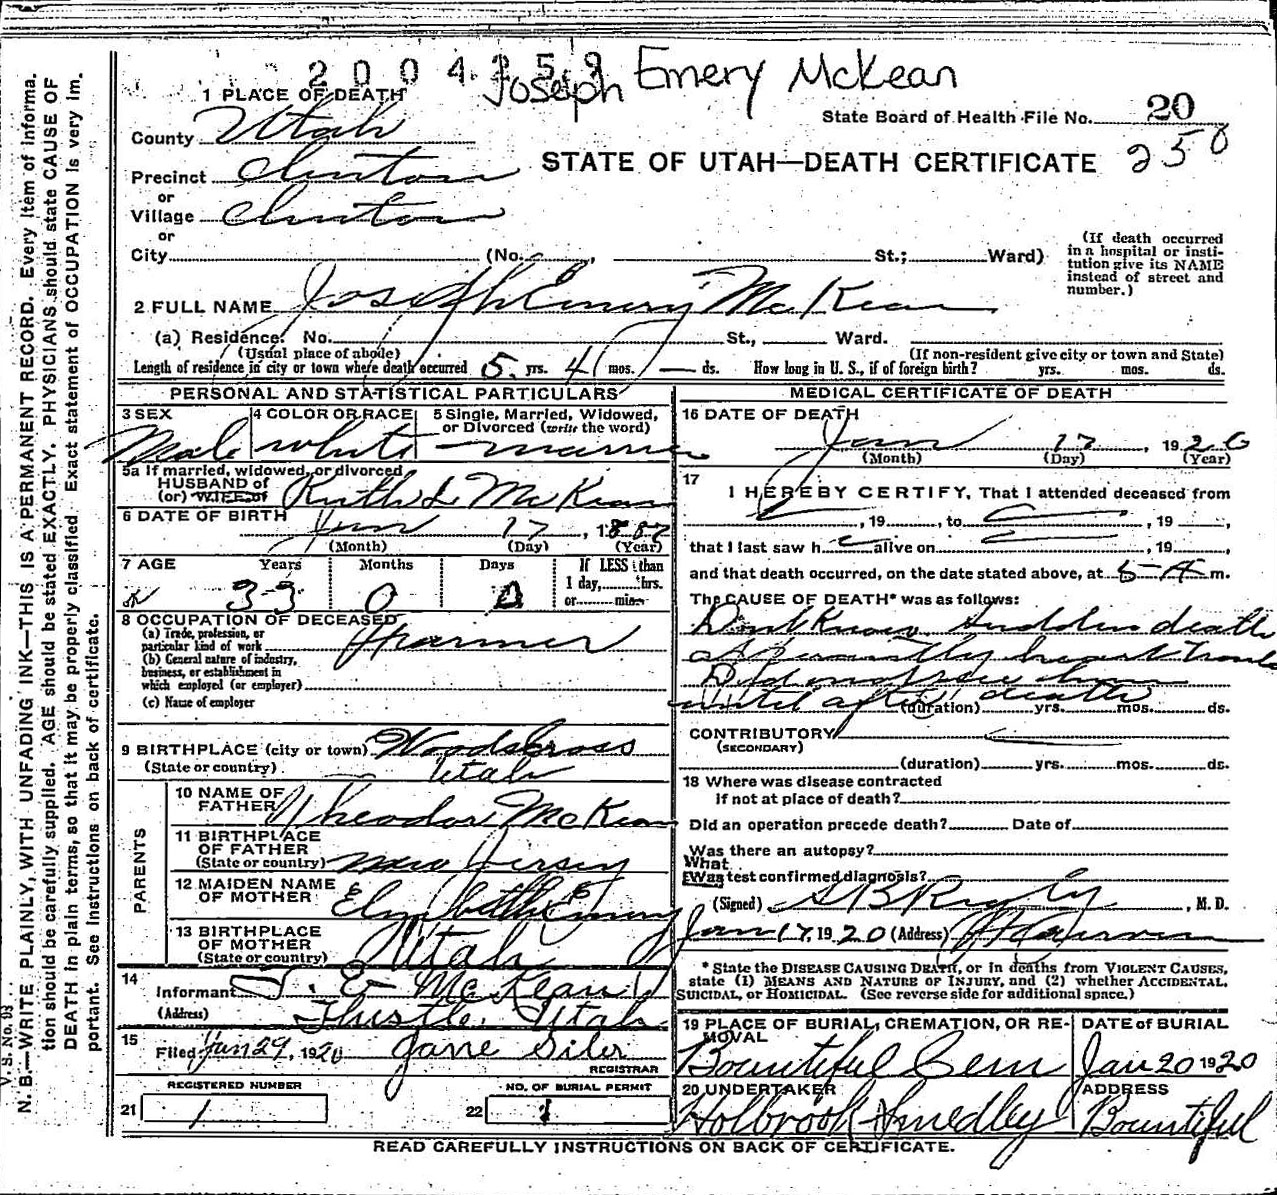 2004259
Joseph Emery McKean
1 PLACE OF DEATH
State Board of Health File No. 20
250
County Utah
STATE OF UTAH—DEATH CERTIFICATE
Precinct Clinton
or
Village Clinton
or
City (No. , St.; Ward)
(If death occurred in a hospital or insti-
tution give its NAME
instead of street and
number.)
2 FULL NAME Joseph Emery McKean
(a) Residence. No. St., Ward.
(Usual place of abode) (If non-resident give city or town and State)
Length of residence in city or town where death occurred 5 yrs. 4 mos. — ds. How long in U. S., if of foreign birth? yrs. mos. ds.
PERSONAL AND STATISTICAL PARTICULARS
3 SEX Male
4 COLOR OR RACE white
5 Single, Married, Widowed,
or Divorced (write the word)
5a If married, widowed, or divorced
HUSBAND of
(or) WIFE of Ruth L McKean
6 DATE OF BIRTH Jan 17, 1887
(Month) (Day) (Year)
7 AGE Years Months Days If LESS than
1 day, hrs.
or min.
33 0 0
8 OCCUPATION OF DECEASED
(a) Trade, profession, or
particular kind of work Farmer
(b) General nature of industry,
business, or establishment in
which employed (or employer)
(c) Name of employer
9 BIRTHPLACE (city or town) Woodscross
(State or country) Utah
PARENTS
10 NAME OF
FATHER Theodor McKean
11 BIRTHPLACE
OF FATHER
(State or country) New Jersey
12 MAIDEN NAME
OF MOTHER Elizabeth Emery
13 BIRTHPLACE
OF MOTHER
(State or country) Utah
14
Informant J. E. McKean
(Address) Thistle. Utah
15
Filed Jan 29, 1920 Jane Siler
REGISTRAR
REGISTERED NUMBER NO. OF BURIAL PERMIT
21 1 22 1
MEDICAL CERTIFICATE OF DEATH
16 DATE OF DEATH
Jan 17 1920
(Month) (Day) (Year)
17
I HEREBY CERTIFY, That I attended deceased from
, 19 , to , 19 ,
that I last saw h alive on , 19 ,
and that death occurred, on the date stated above, at 5 A m.
The CAUSE OF DEATH* was as follows:
Dont Know Sudden death
apparently heart trouble
Did not see him
until after death
(duration) yrs. mos. ds.
CONTRIBUTORY
(SECONDARY)
(duration) yrs. mos. ds.
18 Where was disease contracted
if not at place of death?
Did an operation precede death? Date of
Was there an autopsy?
What
Was test confirmed diagnosis?
(Signed) , M. D.
Jan 17, 1920 (Address)
* State the DISEASE CAUSING DEATH, or in deaths from VIOLENT CAUSES,
state (1) MEANS AND NATURE OF INJURY, and (2) whether ACCIDENTAL,
SUICIDAL, or HOMICIDAL. (See reverse side for additional space.)
19 PLACE OF BURIAL, CREMATION, OR RE-
MOVAL
Bountiful Cem
DATE of BURIAL
Jan 20 1920
20 UNDERTAKER
Holbrook Smedley
ADDRESS
Bountiful
READ CAREFULLY INSTRUCTIONS ON BACK OF CERTIFICATE.
V. S. No. 93
N. B.—WRITE PLAINLY, WITH UNFADING INK—THIS IS A PERMANENT RECORD. Every item of informa-
tion should be carefully supplied. AGE should be stated EXACTLY. PHYSICIANS should state CAUSE OF
DEATH in plain terms, so that it may be properly classified. Exact statement of OCCUPATION is very im-
portant. See instructions on back of certificate.